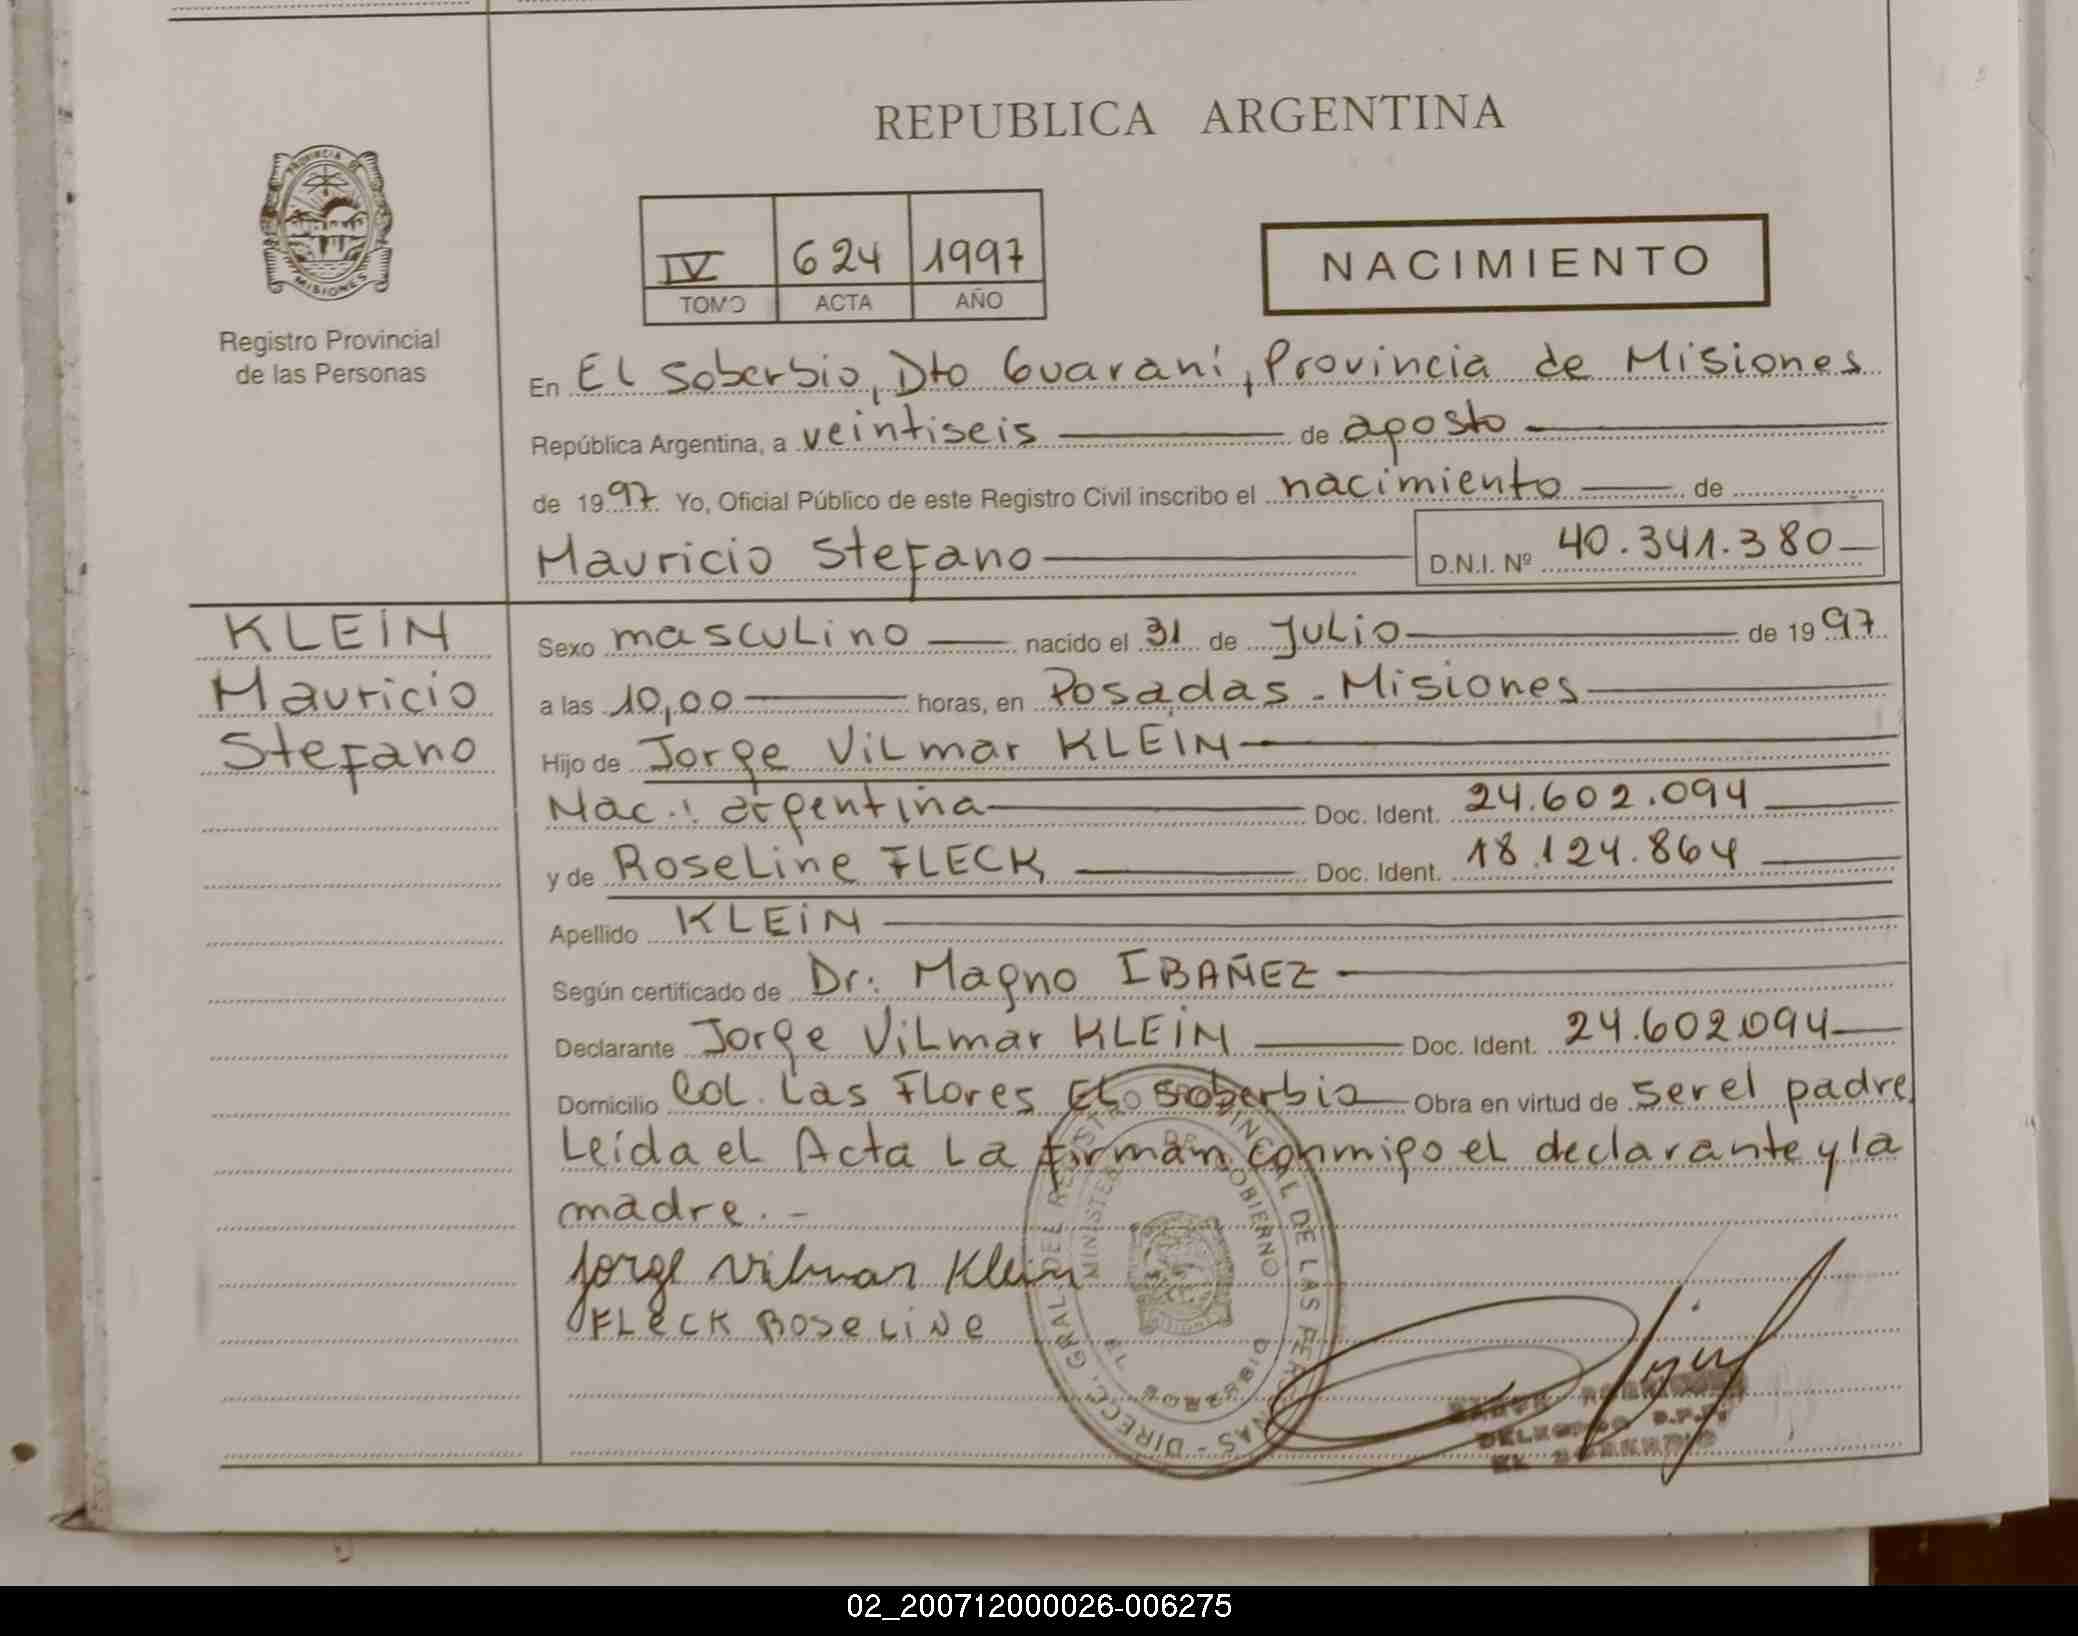 REPUBLICA ARGENTINA
PROVINCIA DE
MISIONES
Registro Provincial
de las Personas
IV 624 1997
TOMO ACTA AÑO
NACIMIENTO
En El Soberbio, Dto Guaraní, Provincia de Misiones
República Argentina, a veintiseis de agosto
de 1997 Yo, Oficial Público de este Registro Civil inscribo el nacimiento de
Mauricio Stefano D.N.I. Nº 40.341.380
KLEIN
Mauricio
Stefano
Sexo masculino nacido el 31 de Julio de 1997
a las 10,00 horas, en Posadas - Misiones
Hijo de Jorge Vilmar KLEIN
Nac.: argentina Doc. Ident. 24.602.094
y de Roseline FLECK Doc. Ident. 18.124.864
Apellido KLEIN
Según certificado de Dr: Magno IBAÑEZ
Declarante Jorge Vilmar KLEIN Doc. Ident. 24.602.094
Domicilio Col. Las Flores El Soberbio Obra en virtud de ser el padre
Leída el Acta la firman conmigo el declarante y la
madre. -
Jorge Vilmar Klein
FLECK ROSELINE
DIRECC. GRAL. DEL REGISTRO PROVINCIAL DE LAS PERSONAS
MINISTERIO DE GOBIERNO
EL SOBERBIO
02_200712000026-006275